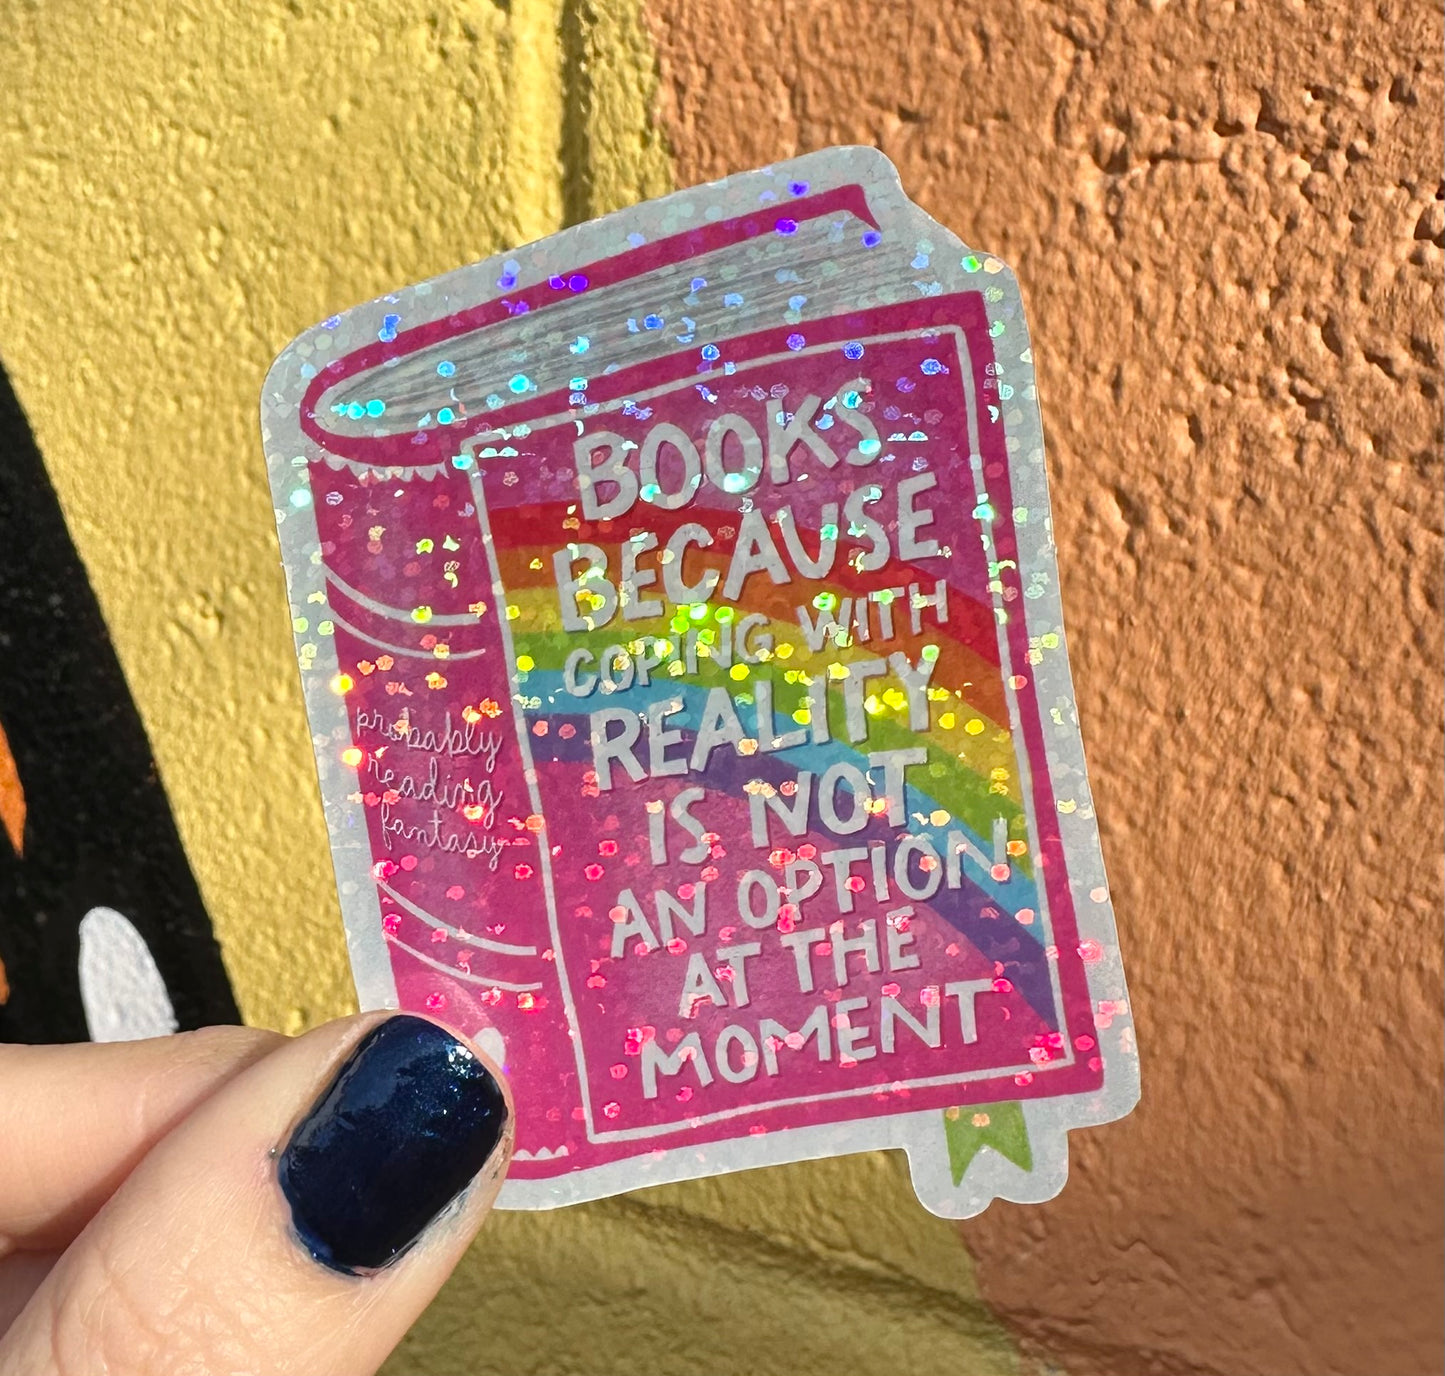 BOOKS
BECAUSE
COPING WITH
REALITY
IS NOT
AN OPTION
AT THE
MOMENT
probably
reading
fantasy